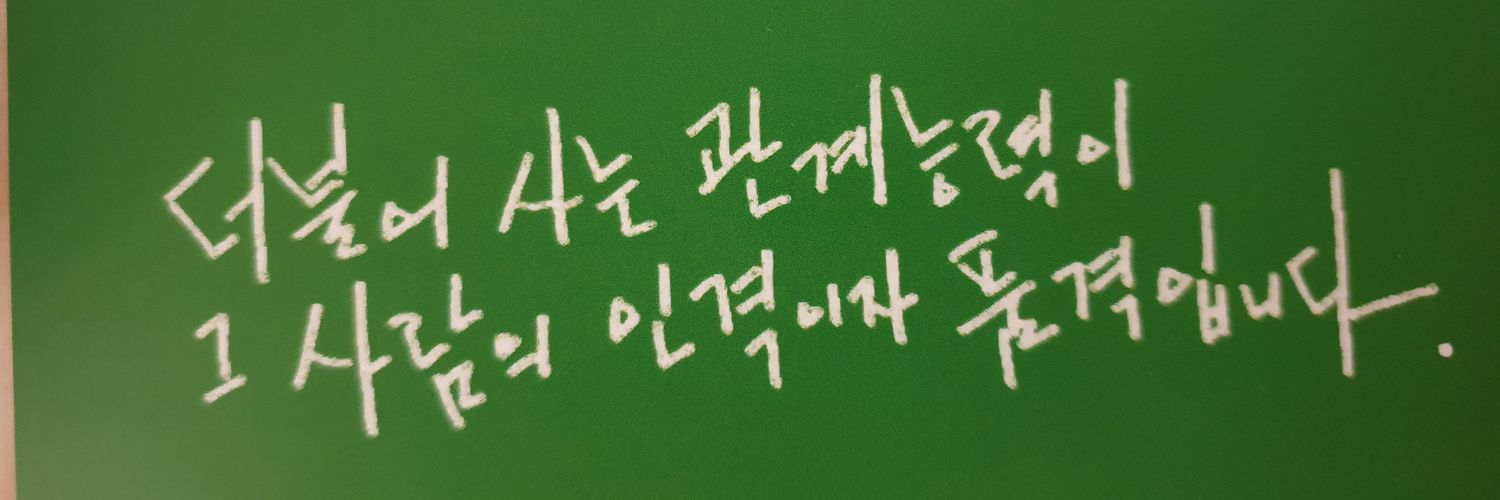 더불어 사는 관계능력이
그 사람의 인격이자 품격입니다.